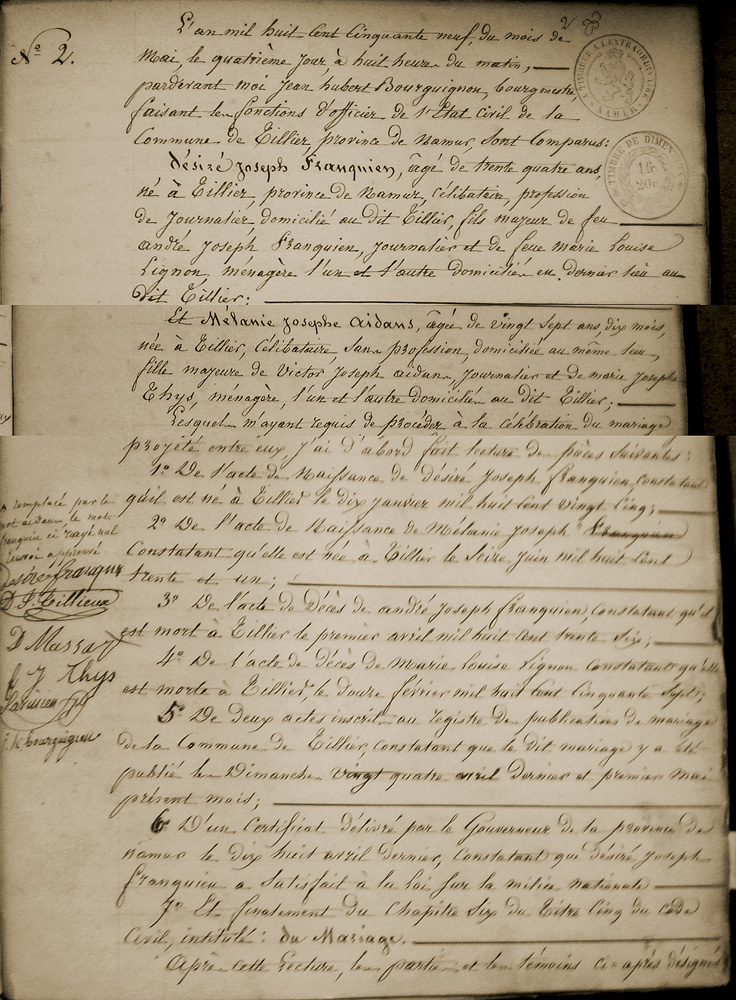 2
N° 2.
L'an mil huit cent cinquante neuf, du mois de
Mai, le quatrième jour à huit heure du matin,
pardevant moi Jean hubert Bourguignon, bourgmestre,
faisant les fonctions d'officier de l'Etat Civil de la
Commune de Tillier, province de Namur, sont comparus:
désiré Joseph Franquien, âgé de trente quatre ans,
né à Tillier, province de Namur, célibataire, profession
de Journalier, domicilié au dit Tillier, fils majeur de feu
andré Joseph Franquien, Journalier et de feue marie Louise
Lignon, ménagère l'un et l'autre domiciliés en dernier lieu au
dit Tillier:
TIMBRE DE DIMEN
NAMUR
Et Mélanie Josephe Aidans, âgée de vingt sept ans, dix mois,
née à Tillier, célibataire, sans profession, domiciliée au même lieu,
fille majeure de Victor Joseph aidans, Journalier et de marie Josephe
Thys, ménagère, l'un et l'autre domiciliés au dit Tillier;
Lesquels m'ayant requis de procéder à la célébration du mariage
projété entre eux, j'ai d'abord fait lecture des pièces suivantes:
1° De l'acte de Naissance de désiré Joseph Franquien, Constatant
qu'il est né à Tillier le dix janvier mil huit cent vingt cinq;
2° De l'acte de Naissance de Mélanie Joseph Franquien
Constatant qu'elle est née à Tillier le Seize Juin mil huit Cent
trente et un;
3° De l'acte de Décès de andré Joseph Franquien, Constatant qu'il
est mort à Tillier le premier avril mil huit cent trente Six;
4° De l'acte de décès de Marie Louise Lignon Constatant qu'elle
est morte à Tillier, le douze février mil huit Cent Cinquante Sept;
5° De deux actes inscrits au registre de publications de mariage
de la Commune de Tillier, Constatant que le dit mariage y a été
publié les Dimanches vingt quatre avril dernier et premier Mai
présent mois;
6° D'un Certificat délivré par le Gouverneur de la province de
namur le dix huit avril dernier, Constatant que désiré Joseph
Franquien a Satisfait à la loi Sur la milice nationale
7° Et finalement du Chapitre Six du Titre Cinq du Code
Civil, intitulé: du Mariage.
Après cette Lecture, les parties et les témoins ci-après désignés
remplacé par le
mot aidans, le mot
franquien ci rayé nul
renvoi approuvé
désiré franquien
D. J. Tillieux
D Massay
J Thys
J. h. bourguignon